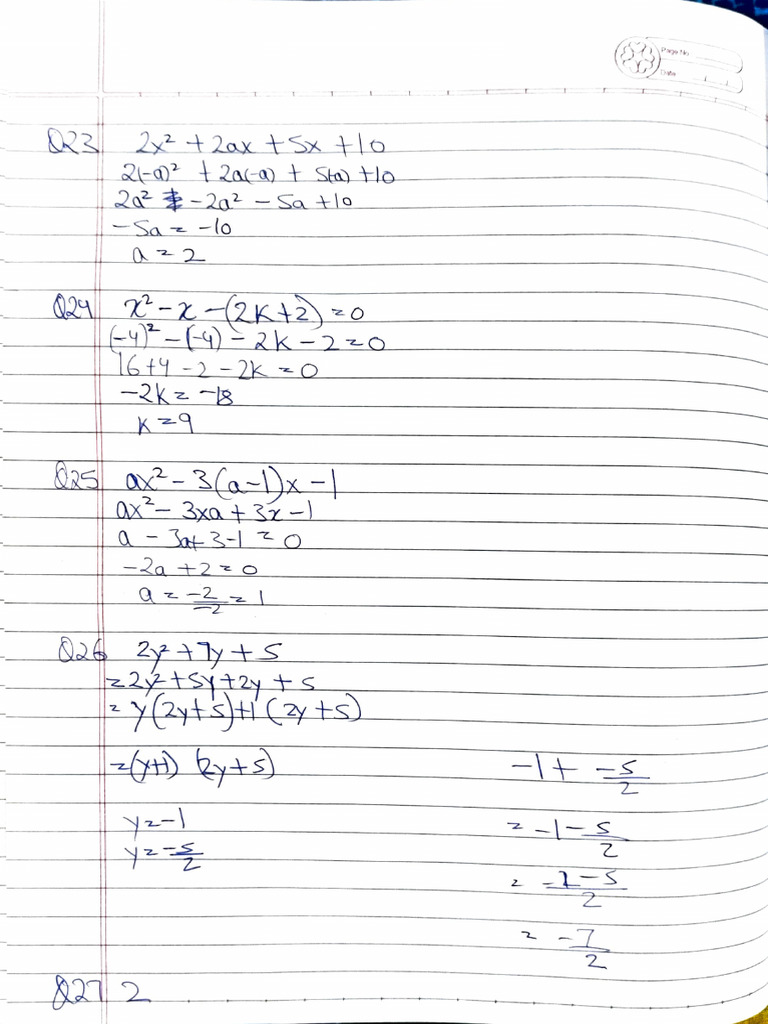 Page No.
Date
Q23 2x² + 2ax + 5x + 10
2(-a)² + 2a(-a) + 5(a) + 10
2a² - 2a² - 5a + 10
-5a = -10
a = 2
Q24 x² - x - (2K+2) = 0
(-4)² - (-4) - 2K - 2 = 0
16 + 4 - 2 - 2K = 0
-2K = -18
K = 9
Q25 ax² - 3(a-1)x - 1
ax² - 3xa + 3x - 1
a - 3a + 3 - 1 = 0
-2a + 2 = 0
a = -2/-2 = 1
Q26 2y² + 7y + 5
= 2y² + 5y + 2y + 5
= y(2y+5) + 1(2y+5)
= (y+1) (2y+5)
y = -1
y = -5/2
-1 + -5/2
= -1 - 5/2
= -2 - 5/2
= -7/2
Q27 2